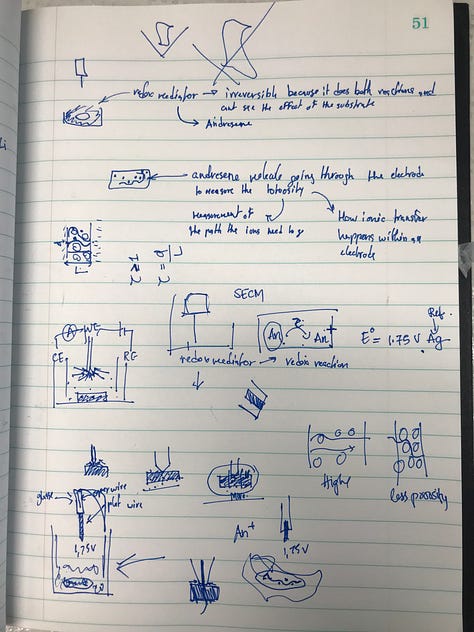 51
redox mediator → irreversible because it does both reactions and
cant see the effect of the substrate
→ Andresene
andresene molecule going through the electrode
to measure the totousity
measurement of
the path the ions need to go
How ionic transfer
happens within an
electrode
SECM
Ref.
An e An+
E° = 1.75 V Ag
redox mediator → redox reaction
A WE
CE RE
High
less porosity
glass
wire
plat wire
An+
1,75V
1,75V